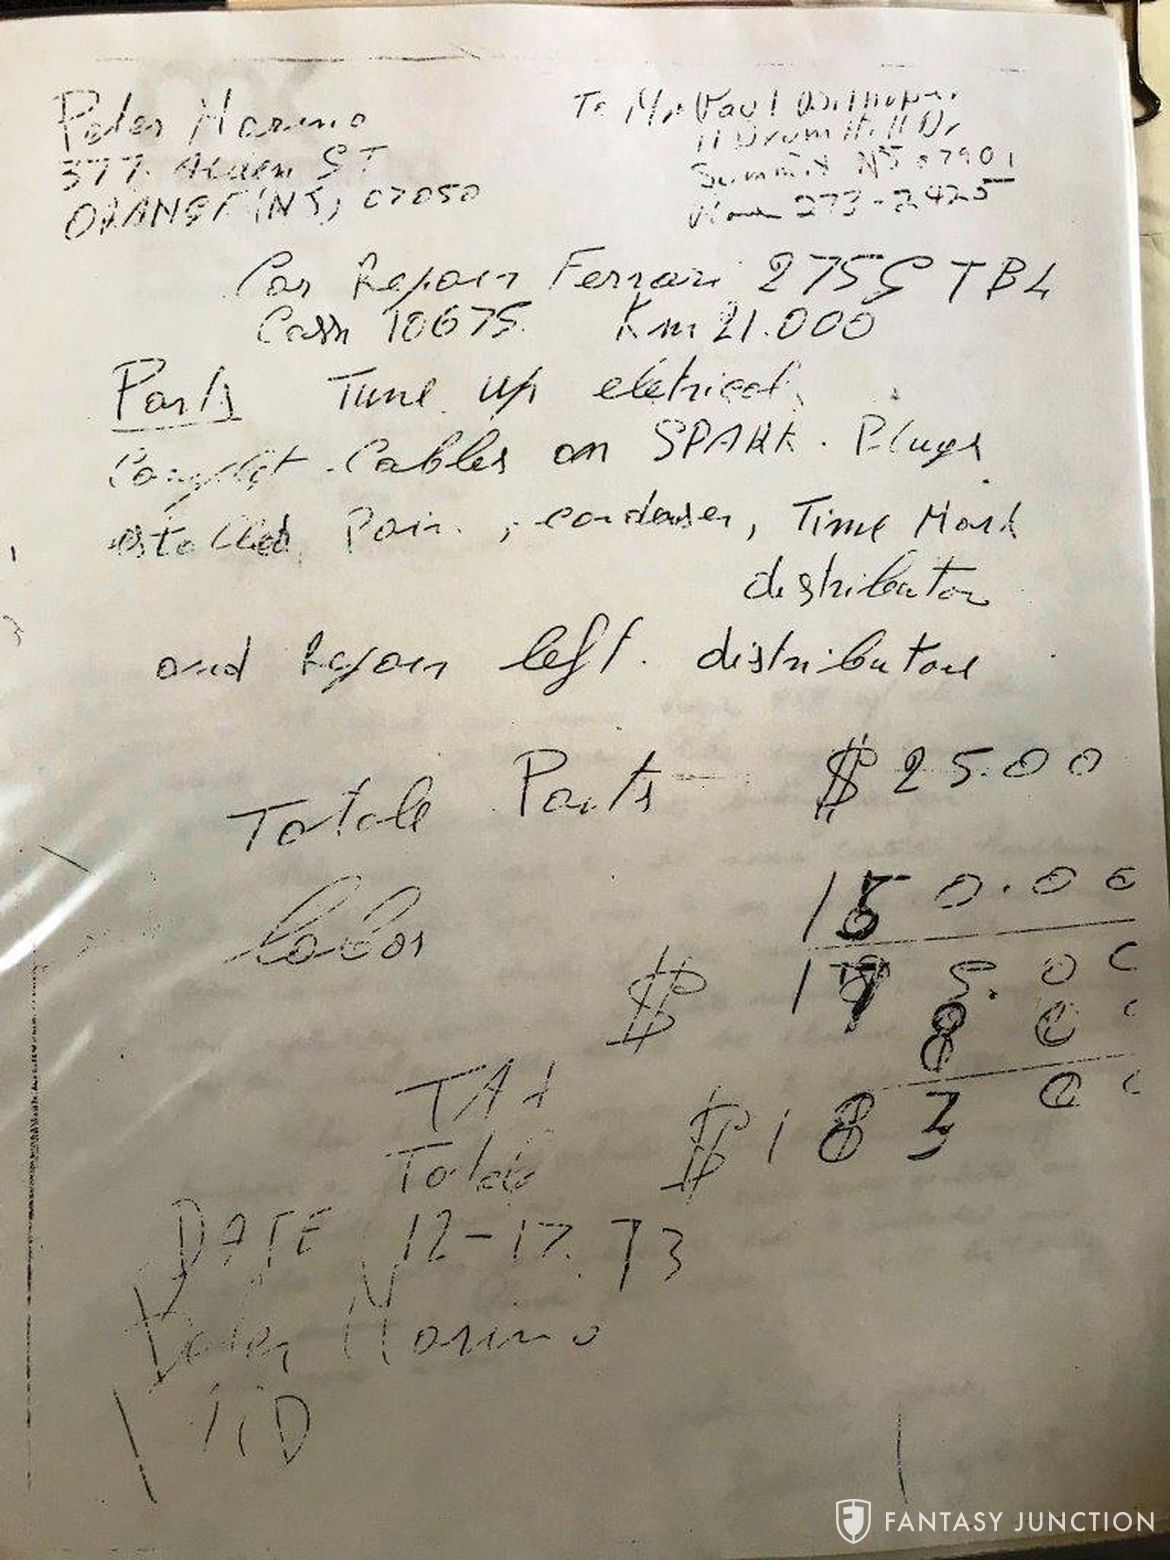 Peter Morino
377 Alden ST
ORANGE (NJ) 07050
To Mr Paul
11 Drum Hill Dr
Summit NJ 07901
273-2425
Car Repair Ferrari 275GTBL
Cassn 10675 Km 21.000
Parts Tune up eletrical,
Complet. Cables on SPARK. Plugs
estalled, Poin. , condenser, Time Mark
distributor
and Repair left. distributore
Totale Parts $ 25.00
labor 150.00
$ 175.00
TAX 8 00
Totale $ 183 00
DATE 12-17.73
Peter Morino
FANTASY JUNCTION